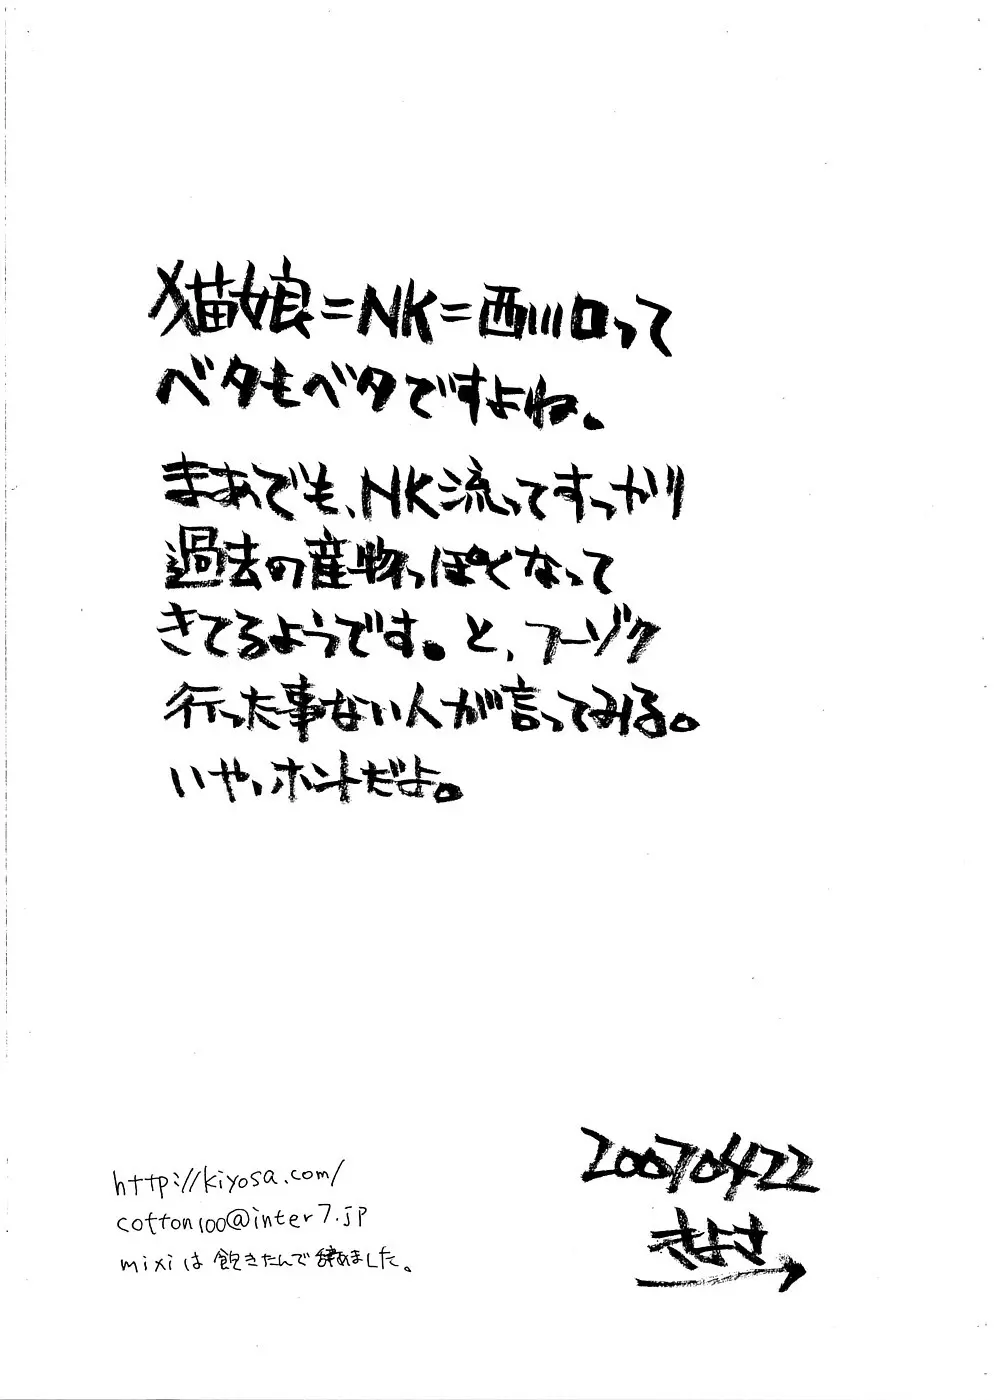 猫娘=NK=西川口って
ベタもベタですよね。
まあでも、NK流ってすっかり
過去の産物っぽくなって
きてるようです。と、フーゾク
行った事ない人が言ってみる。
いやっホントだよ。
20070422
きよさ
http://kiyosa.com/
cotton100@inter7.jp
mixiは飽きたんで辞めました。